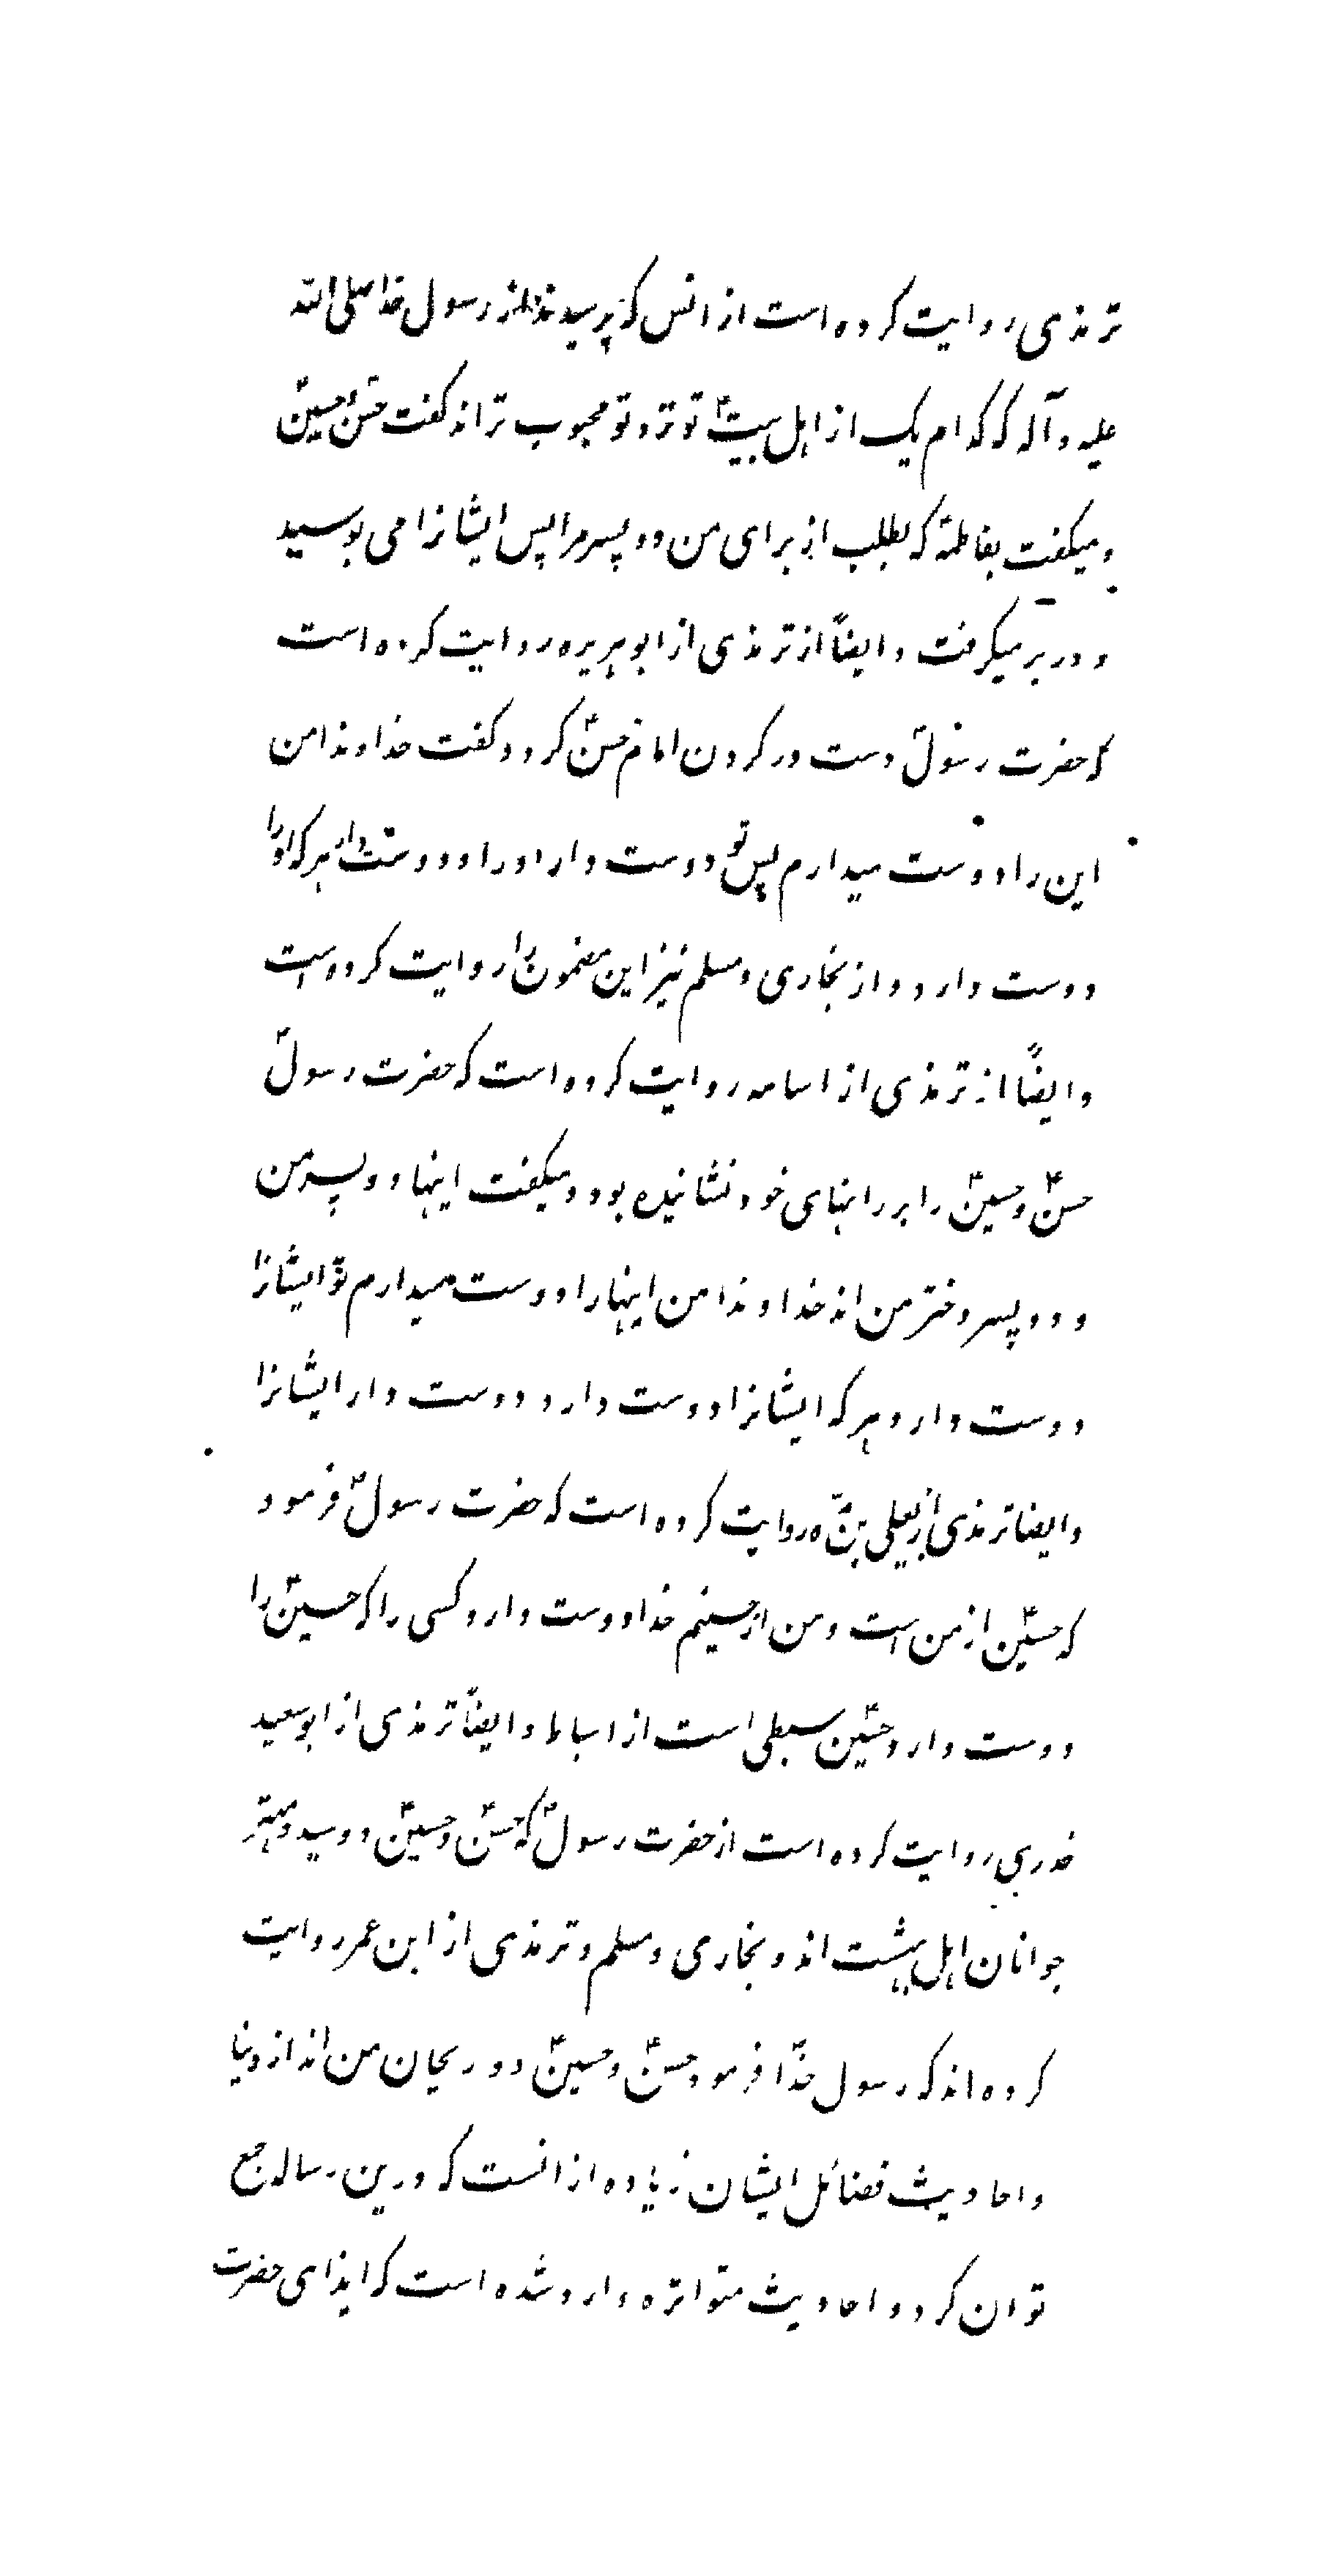 ترمذی روایت کرده است از انس که پرسیدند از رسول خدا صلی الله
علیه و آله که کدام یک از اهل بیت تو نزد تو محبوب تراند گفت حسن و حسین
و میگفت بفاطمه که بطلب از برای من دو پسر مرا پس ایشانرا می بوسید
و در بر میگرفت و ایضاً از ترمذی از ابو هریره روایت کرده است
که حضرت رسول دست در گردن امام حسن کرد و گفت خداوندا من
این را دوست میدارم پس تو دوست دار او را و دوست دار هر که او را
دوست دارد و از بخاری و مسلم نیز این مضمون را روایت کرده است
و ایضاً از ترمذی از اسامه روایت کرده است که حضرت رسول
حسن و حسین را بر رانهای خود نشانیده بود و میگفت اینها دو پسر من
و دو پسر دختر من اند خداوندا من اینها را دوست میدارم تو ایشانرا
دوست دار و هر که ایشانرا دوست دارد دوست دار ایشانرا
و ایضا ترمذی از یعلی بن مره روایت کرده است که حضرت رسول فرمود
که حسین از من است و من از حسینم خدا دوست دارد کسی را که حسین را
دوست دارد و حسین سبطی است از اسباط و ایضاً ترمذی از ابو سعید
خدری روایت کرده است از حضرت رسول که حسن و حسین دو سید و مهتر
جوانان اهل بهشت اند و بخاری و مسلم و ترمذی از ابن عمر روایت
کرده اند که رسول خدا فرمود حسن و حسین دو ریحان من اند از دنیا
و احادیث فضائل ایشان زیاده از انست که درین رساله جمع
توان کرد و احادیث متواتره وارد شده است که ایذای حضرت